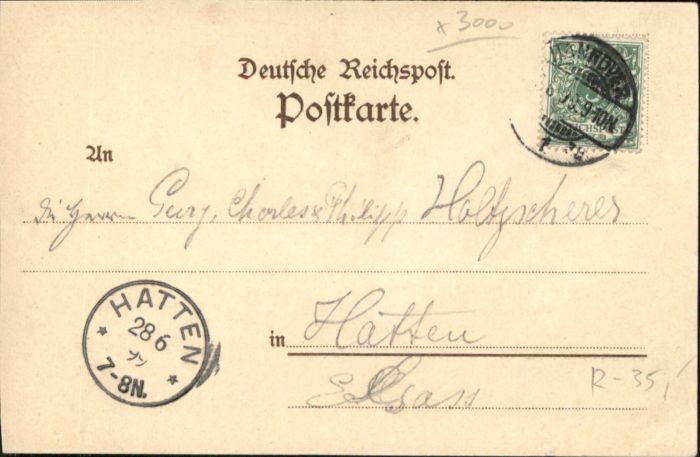 x 3000
Deutsche Reichspost.
Postkarte.
HANNOVER
9-10N.
1 3g
An
die Herren Georg, Charles & Philipp Holtzscherer
HATTEN
28 6
99
7-8N.
in Hatten
Elsass
R-35,-